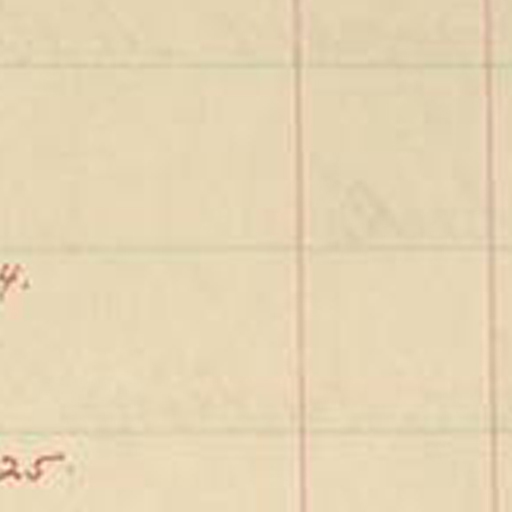 4.
25